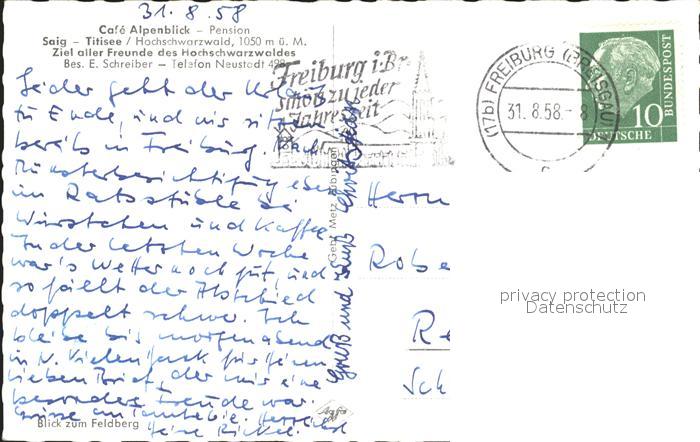 31.8.58
Café Alpenblick – Pension
Saig – Titisee / Hochschwarzwald, 1050 m ü. M.
Ziel aller Freunde des Hochschwarzwaldes
Bes. E. Schreiber – Telefon Neustadt 498
Leider geht der
zu Ende, und wir sitzen
bereits in Freiburg. Nach
Münsterbesichtigung eben
im Ratsstüble bei
Würstchen und Kaffee.
In der letzten Woche
war's Wetter noch gut, und
so fällt der Abschied
doppelt schwer. Ich
bleibe bis morgen abend
in N. Vielen Dank für Deinen
lieben Brief, der mir eine
besondere Freude war.
Grüsse an Herzlichst
Deine
Gruß und Kuß
Blick zum Feldberg
Gebr. Metz Tübingen
Freiburg i. Br.
schön zu jeder
Jahreszeit
(17b) FREIBURG (BREISGAU)
31.8.58.- 8
c
DEUTSCHE
BUNDESPOST
10
Herrn
Robe
Re
Sch
privacy protection
Datenschutz
Agfa